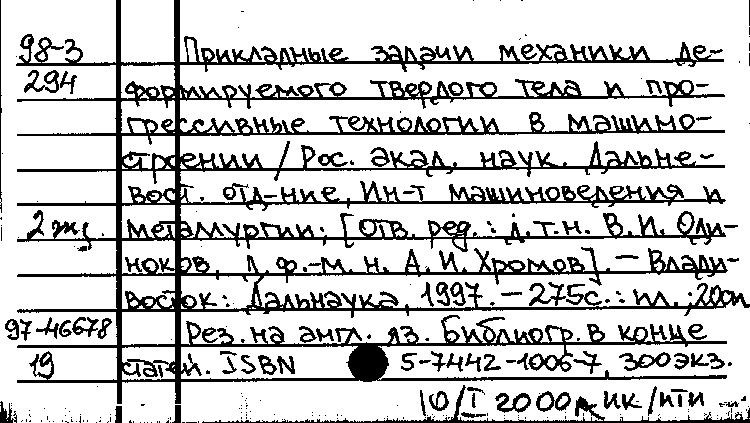 98-3 Прикладные задачи механики де-
294 формируемого твердого тела и про-
грессивные технологии в машино-
строении / Рос. акад. наук. Дальне-
вост. отд-ние, Ин-т машиноведения и
2 экз. металлургии; [отв. ред.: д.т.н. В. И. Оди-
ноков, д. ф.-м. н. А. И. Хромов]. — Влади-
восток: Дальнаука, 1997. — 275с. : ил. ; 20см
97-46678 Рез. на англ. яз. Библиогр. в конце
19 статей. ISBN 5-7442-1006-7, 300экз.
10/I 2000